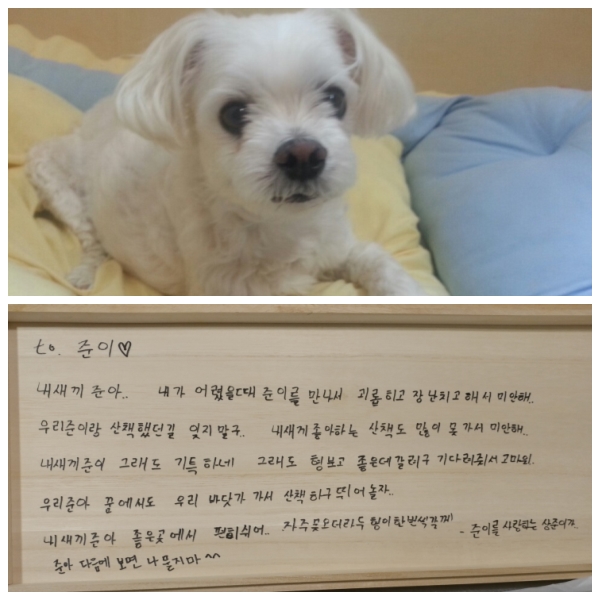 to. 준이♡
내새끼 준아.. 내가 어렸을때 준이를 만나서 괴롭히고 장난치고 해서 미안해..
우리준이랑 산책했던길 잊지말구.. 내새게 좋아하는 산책도 많이 못가서 미안해..
내새게준이 그래도 기특하네 그래도 형보고 좋은데 갈려구 기다려줘서 고마워.
우리준아 꿈에서도 우리 바닷가 가서 산책하구 뛰어놀자..
내새끼준아 좋은곳에서 편히쉬어.. 자주못오더라두 형이한번씩갈께! - 준이를 사랑하는 상준이가.
준아 다음에 보면 나 물지마 ^^